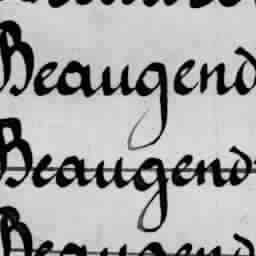 Beaugend
Beaugend
Beaugend